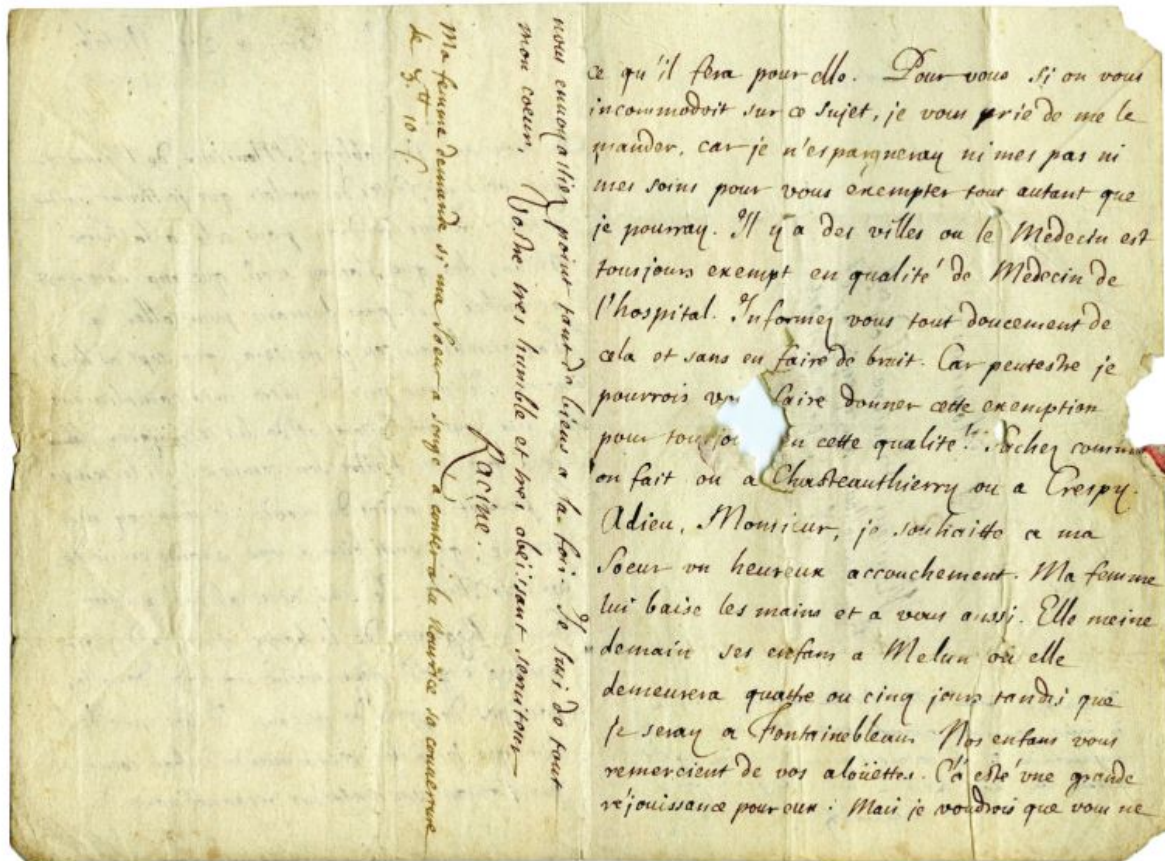 ce qu'il fera pour elle. Pour vous si on vous
incommodoit sur ce sujet, je vous prie de me le
mander, car je n'espargneray ni mes pas ni
mes soins pour vous exempter tout autant que
je pourray. Il y a des villes ou le Médecin est
tousjours exempt en qualité de Médecin de
l'hospital. Informez vous tout doucement de
cela et sans en faire de bruit. Car peutestre je
pourrois faire donner cette exemption
pour en cette qualité. Sachez comme
on fait ou a Chasteauthierry ou a Crespy.
Adieu, Monsieur, je souhaitte a ma
Soeur un heureux accouchement. Ma femme
lui baise les mains et a vous aussi. Elle meine
demain ses enfans a Melun où elle
demeurera quattre ou cinq jours tandis que
je seray a Fontainebleau. Nos enfans vous
remercient de vos aloüettes. C'a esté une grande
réjouissance pour eux : Mais je voudrois que vous ne
nous envoyassiez point tant de biens a la fois. Je suis de tout
mon coeur, Vostre tres humble et tres obéissant serviteur
Racine.
Ma femme demande si ma Soeur a songé a conter a la Nourrice sa couverture
de 10